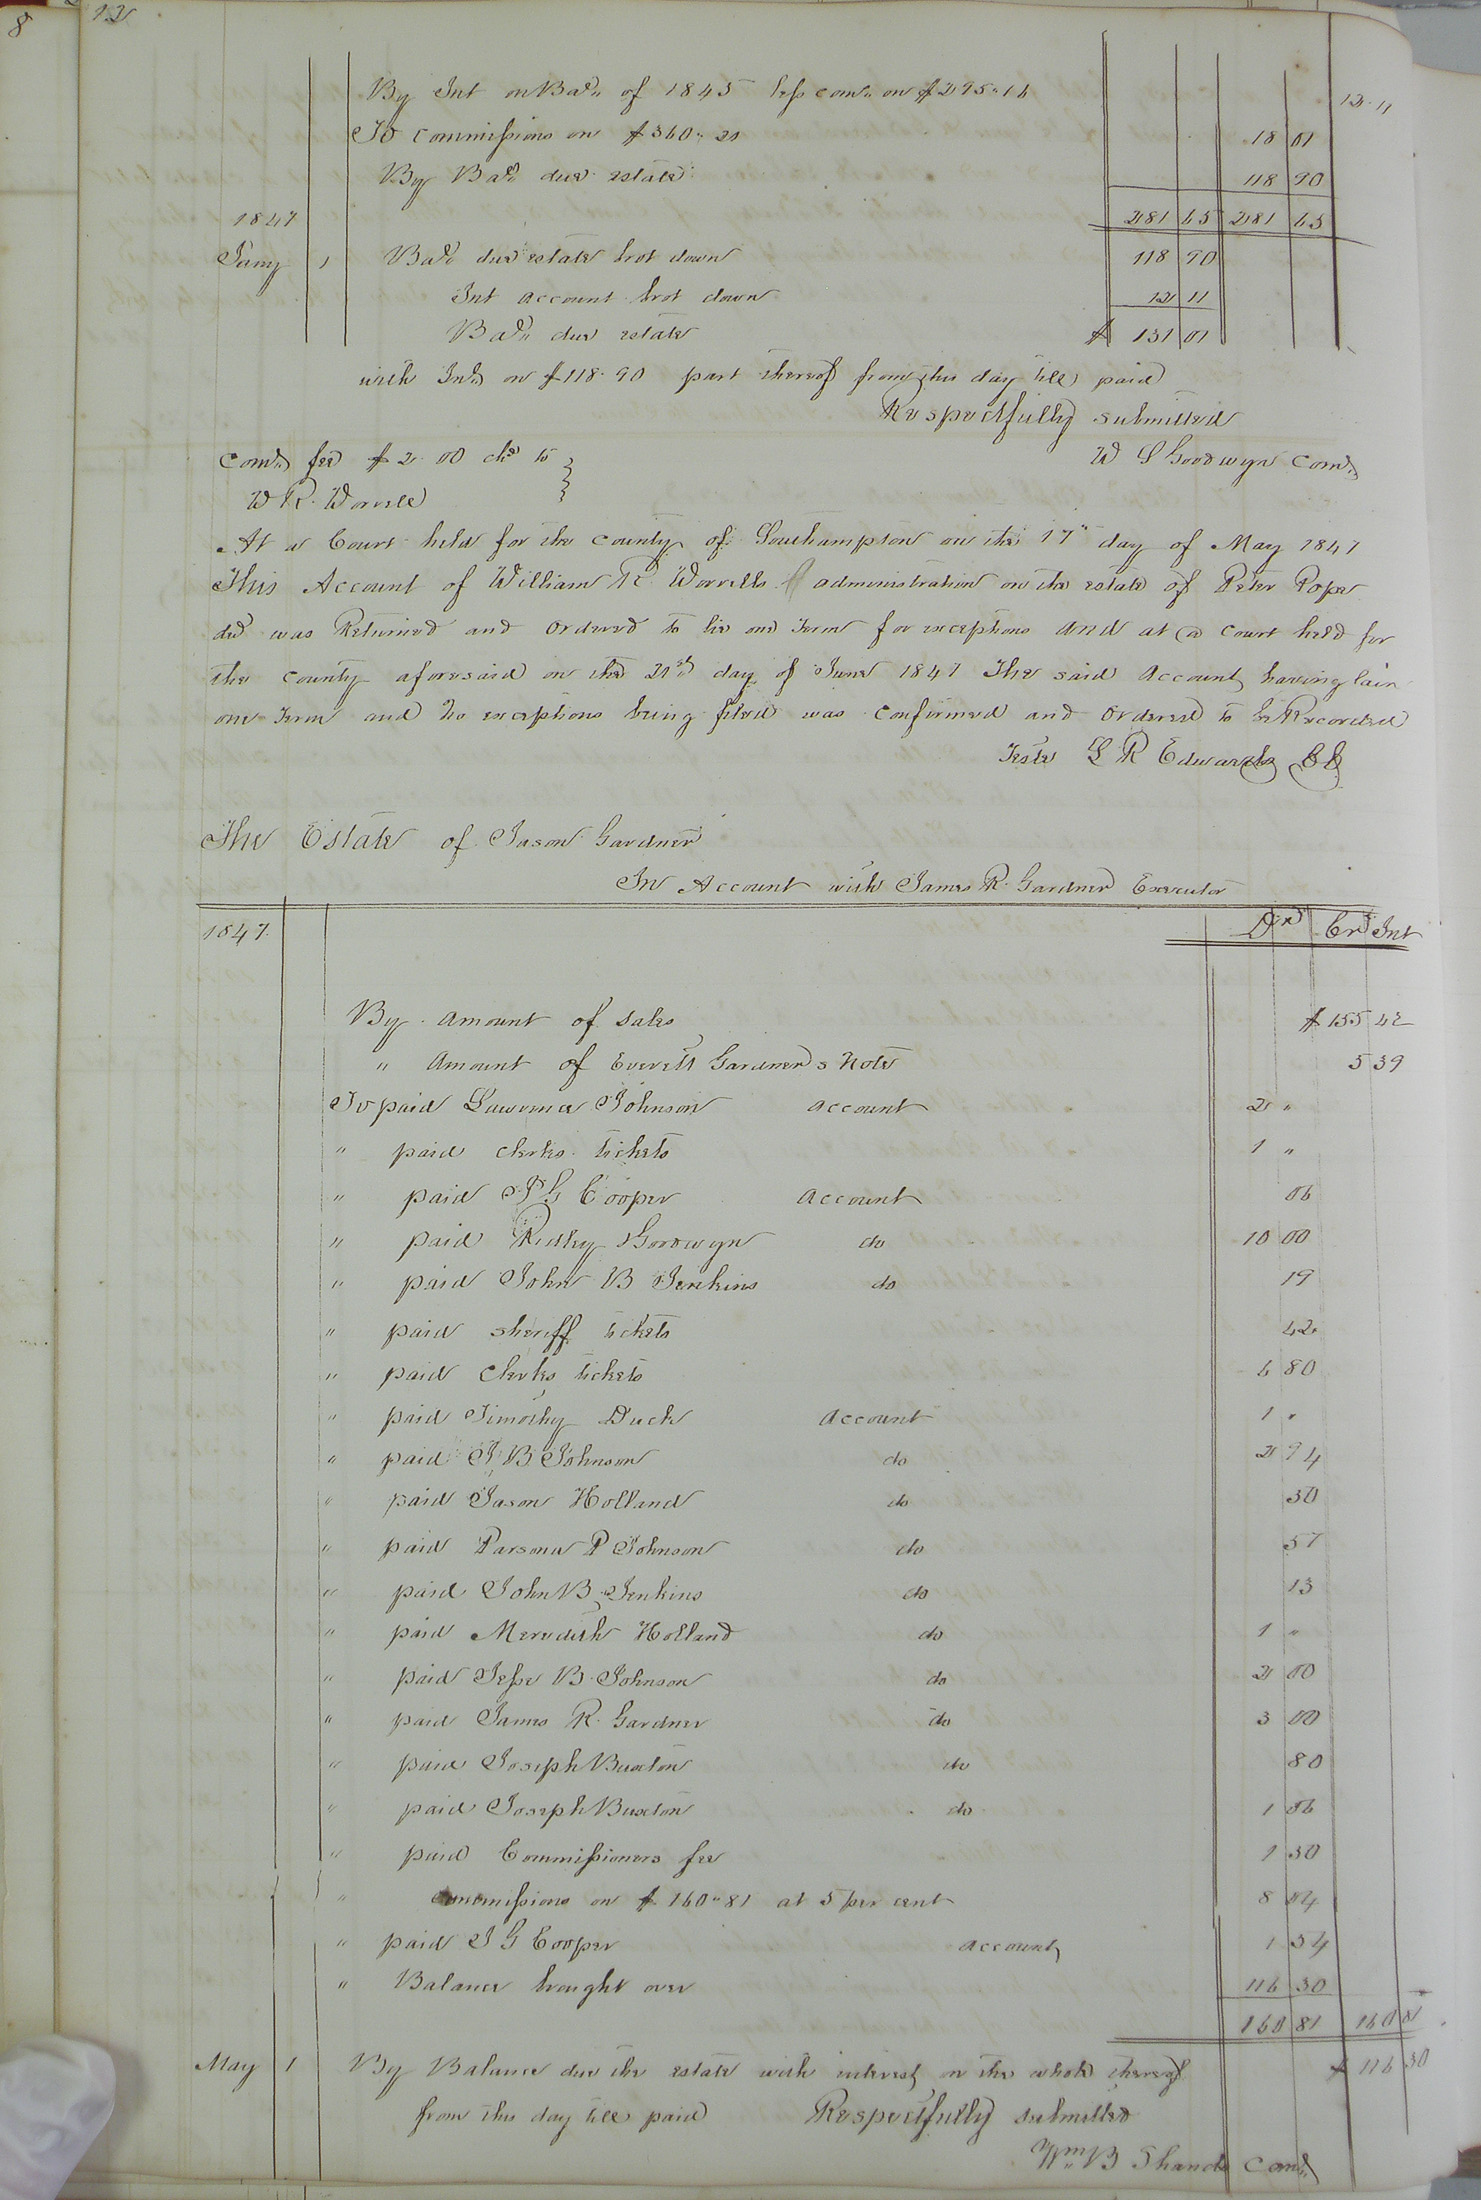 8
12
By Int on Bal. of 1845 less com. on $295.16 12.11
To commissions on $360.21 18 01
By Bal. due estate 118 90
1847 281 65 281 65
Jany 1 Bal. due estate brot down 118 90
Int account brot down 12 11
Bal. due estate $ 131 01
with Int on $118.90 part thereof from this day till paid
Respectfully submitted
Com. fee $2.00 chd to W S Goodwyn Com.
W R. Worrell
At a Court held for the county of Southampton on the 17th day of May 1847
This Account of William R. Worrells administration on the estate of Peter Pope
decd was Returned and Ordered to lie one Term for exceptions And at a Court held for
the county aforesaid on the 21st day of June 1847 The said Account having lain
one Term and no exceptions being filed was Confirmed and Ordered to be Recorded
Teste L R Edwards CC
The Estate of Jason Gardner
In Account with James R. Gardner Executor
1847. Dr Cr Int
By Amount of Sales $ 155 42
" Amount of Everett Gardners Note 5 39
To paid Lawrence Johnson account 2 "
" paid clerks tickets 1 "
" paid J G Cooper account 06
" paid Ridley Goodwyn do 10 00
" paid John B Jenkins do 19
" paid sheriff tickets 42
" paid Clerks tickets 6 80
" paid Timothy Duck account 1 "
" paid J B Johnson do 2 94
" paid Jason Holland do 30
" paid Parsona P Johnson do 57
" paid John B Jenkins do 13
" paid Meredith Holland do 1 "
" paid Jesse B. Johnson do 2 00
" paid James R. Gardner do 3 00
" paid Joseph Buxton do 80
" paid Joseph Buxton do 1 56
" paid Commissioners fee 1 50
" commissions on $160.81 at 5 per cent 8 04
" paid J G Cooper account 1 54
" Balance brought over 116 30
160 81 160 81
May 1 By Balance due the estate with interest on the whole thereof $ 116 30
from this day till paid Respectfully submitted
Wm B Shands Com.